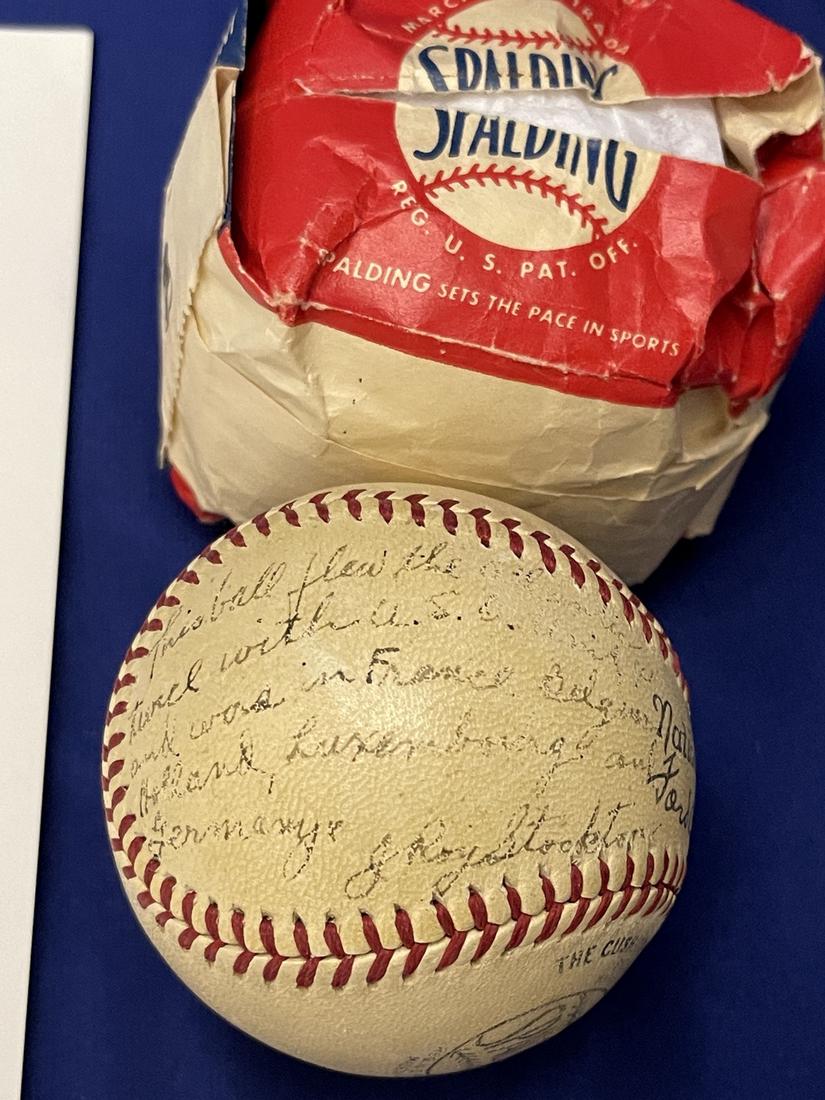 SPALDING
SPALDING
REG. U. S. PAT. OFF.
PALDING SETS THE PACE IN SPORTS
This ball flew the
twice with U. S. O.
and was in France Belgium
Holland, Luxembourg and
Germany.
J Roy Stockton
THE CUSH